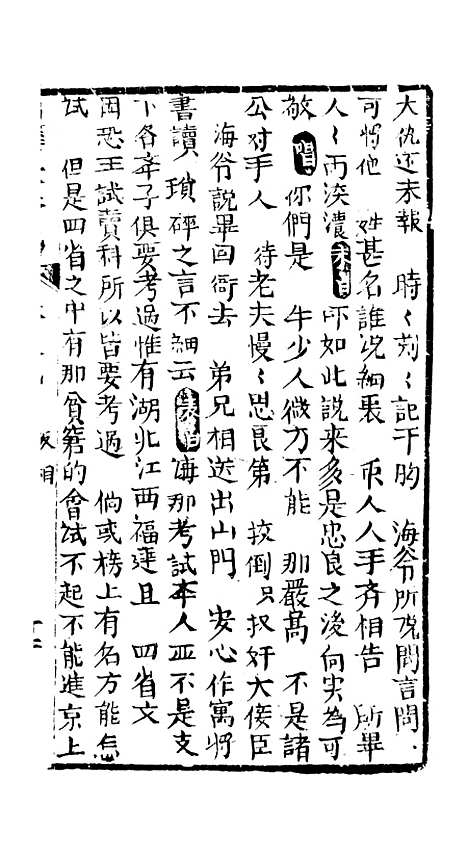 大仇还未報　時〻刻〻記于胸　海爷所说聞言問
可将他　姓甚名誰说細裏　人人手齐相告　所畢
人〻而淡濃　如此說来多是忠良之後向实為可
敬　唱　你們是　年少人微力不能　那嚴高　不是諸
公对手人　待老夫慢〻思良第　扳倒只奸大佞臣
海爷說畢回衙去　弟兄相送出山門　安心作寓将
書讀　瑣碎之言不細云　海那考試本人並不是支
下各弃子俱要考過惟有湖北江西福建且　四省文
因恐王試賣科所以皆要考過　倘或榜上有名方能怎
试　但是四省之中有那貧窮的會试不起不能進京上